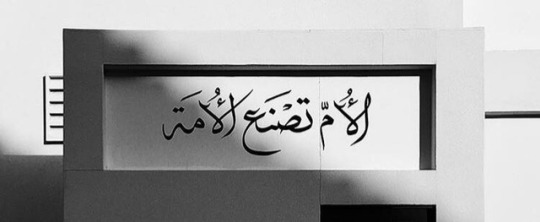 الأُمّ تصْنَع الأُمَة